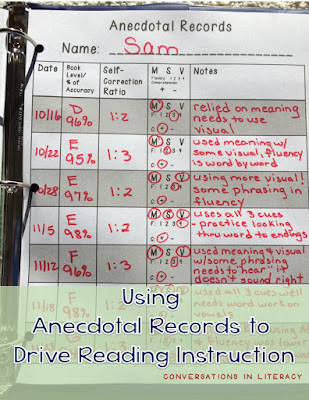 Anecdotal Records
Name: Sam
Date Book Level/ % of Accuracy Self-Correction Ratio M S V Fluency 1 2 3 4 Comprehension + - Notes
10/16 D 96% 1:2 M S V F: 1 2 3 4 C: + - relied on meaning
needs to use
visual
10/22 E 95% 1:3 M S V F: 1 2 3 4 C: + - used meaning w/
some visual, fluency
is word by word
10/28 E 97% 1:2 M S V F: 1 2 3 4 C: + - using more visual!
some phrasing in
fluency
11/5 E 98% 1:2 M S V F: 1 2 3 4 C: + - uses all 3 cues
- practice looking
thru word to endings
11/12 F 96% 1:3 M S V F: 1 2 3 4 C: + - used meaning & visual
w/some phrasing
needs to hear "it
doesn't sound right
11/18 F 98% used all 3 cues well
needs word work on
vowels
& fluency was lower
Using
Anecdotal Records to
Drive Reading Instruction
CONVERSATIONS IN LITERACY